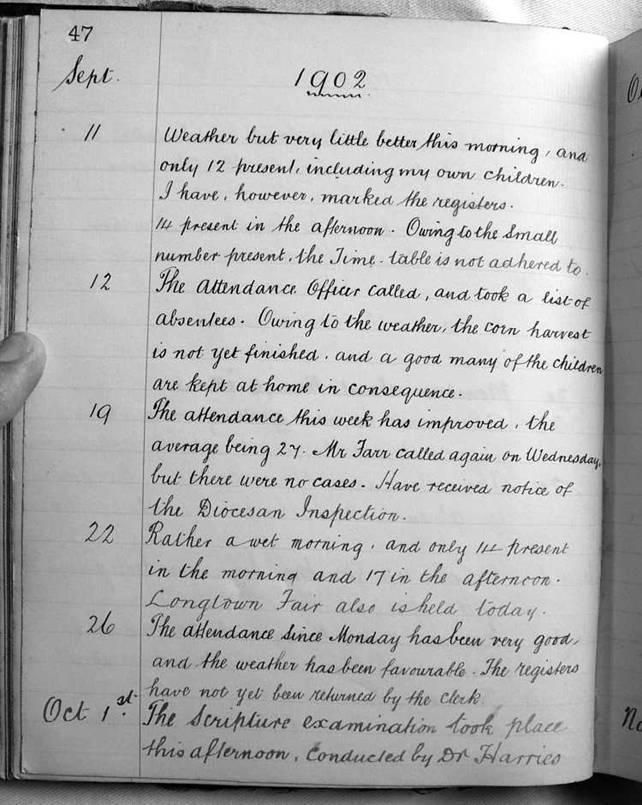 47
Sept. 1902
11 Weather but very little better this morning, and
only 12 present, including my own children.
I have, however, marked the registers.
14 present in the afternoon. Owing to the small
number present, the Time-table is not adhered to.
12 The Attendance Officer called, and took a list of
absentees. Owing to the weather, the corn harvest
is not yet finished, and a good many of the children
are kept at home in consequence.
19 The attendance this week has improved, the
average being 27. Mr Farr called again on Wednesday,
but there were no cases. Have received notice of
the Diocesan Inspection.
22 Rather a wet morning, and only 14 present
in the morning and 17 in the afternoon.
Longtown Fair also is held today.
26 The attendance since Monday has been very good,
and the weather has been favourable. The registers
have not yet been returned by the clerk
Oct 1st. The Scripture examination took place
this afternoon, conducted by Dr Harries